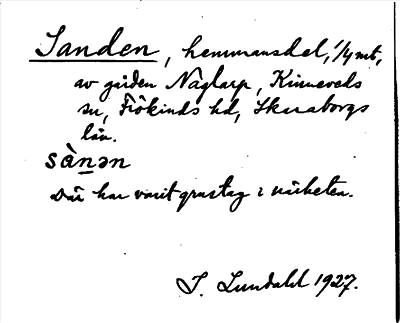 Sanden, hemmansdel, 1/4 mt,
av gården Naglarp, Kinneveds
sn, Frökinds hd, Skaraborgs
län.
sànən
Där har varit grustag i närheten.
J. Lundahl 1927.